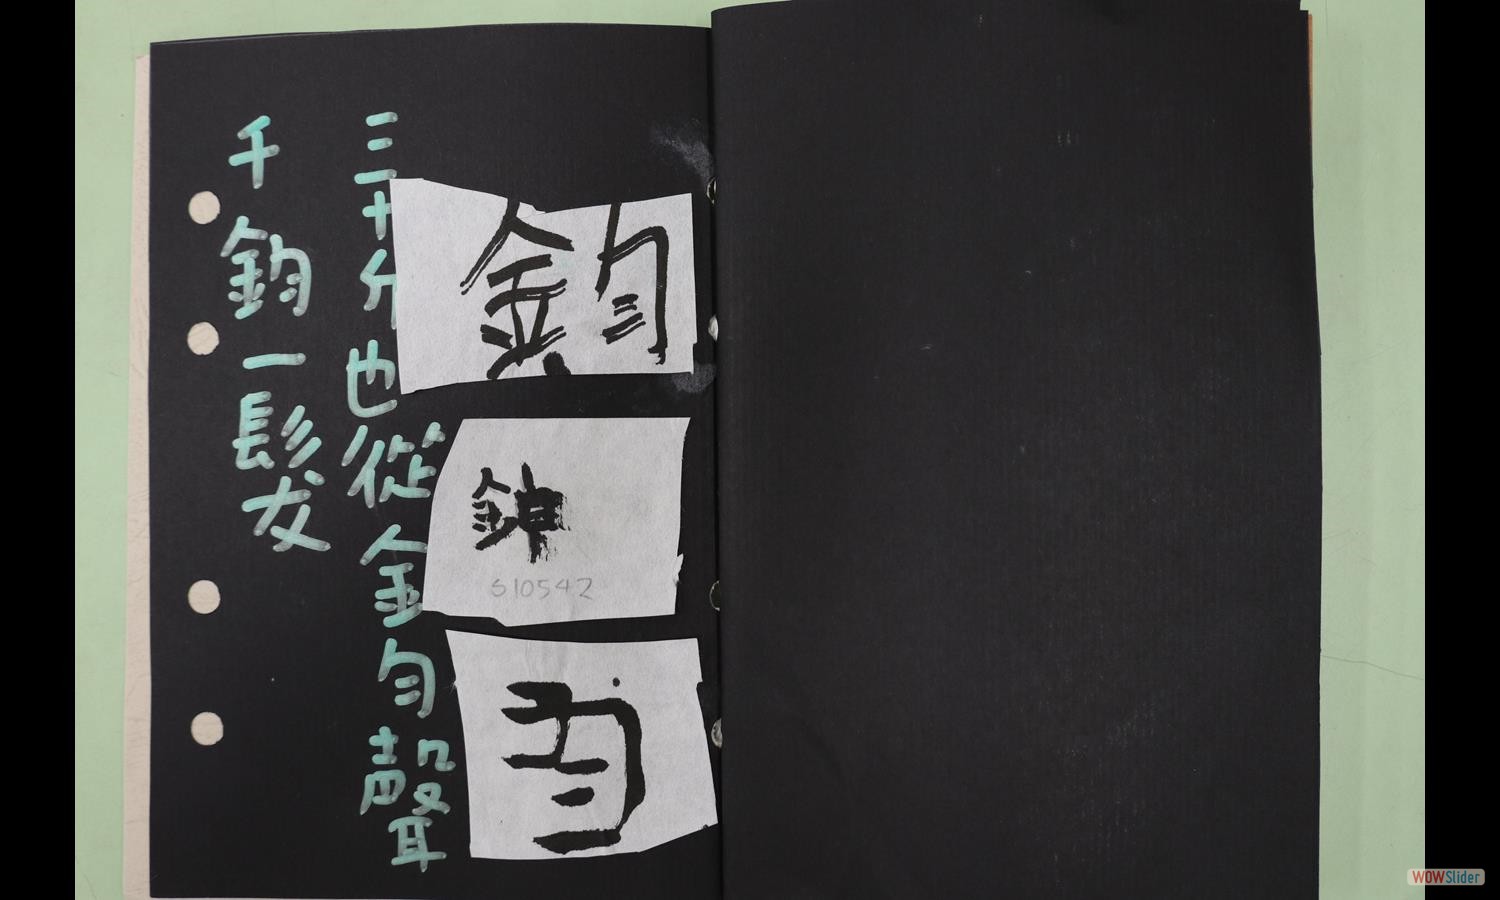 鈞
S10542
三十斤也從金勻聲
千鈞一髮
WOWSlider